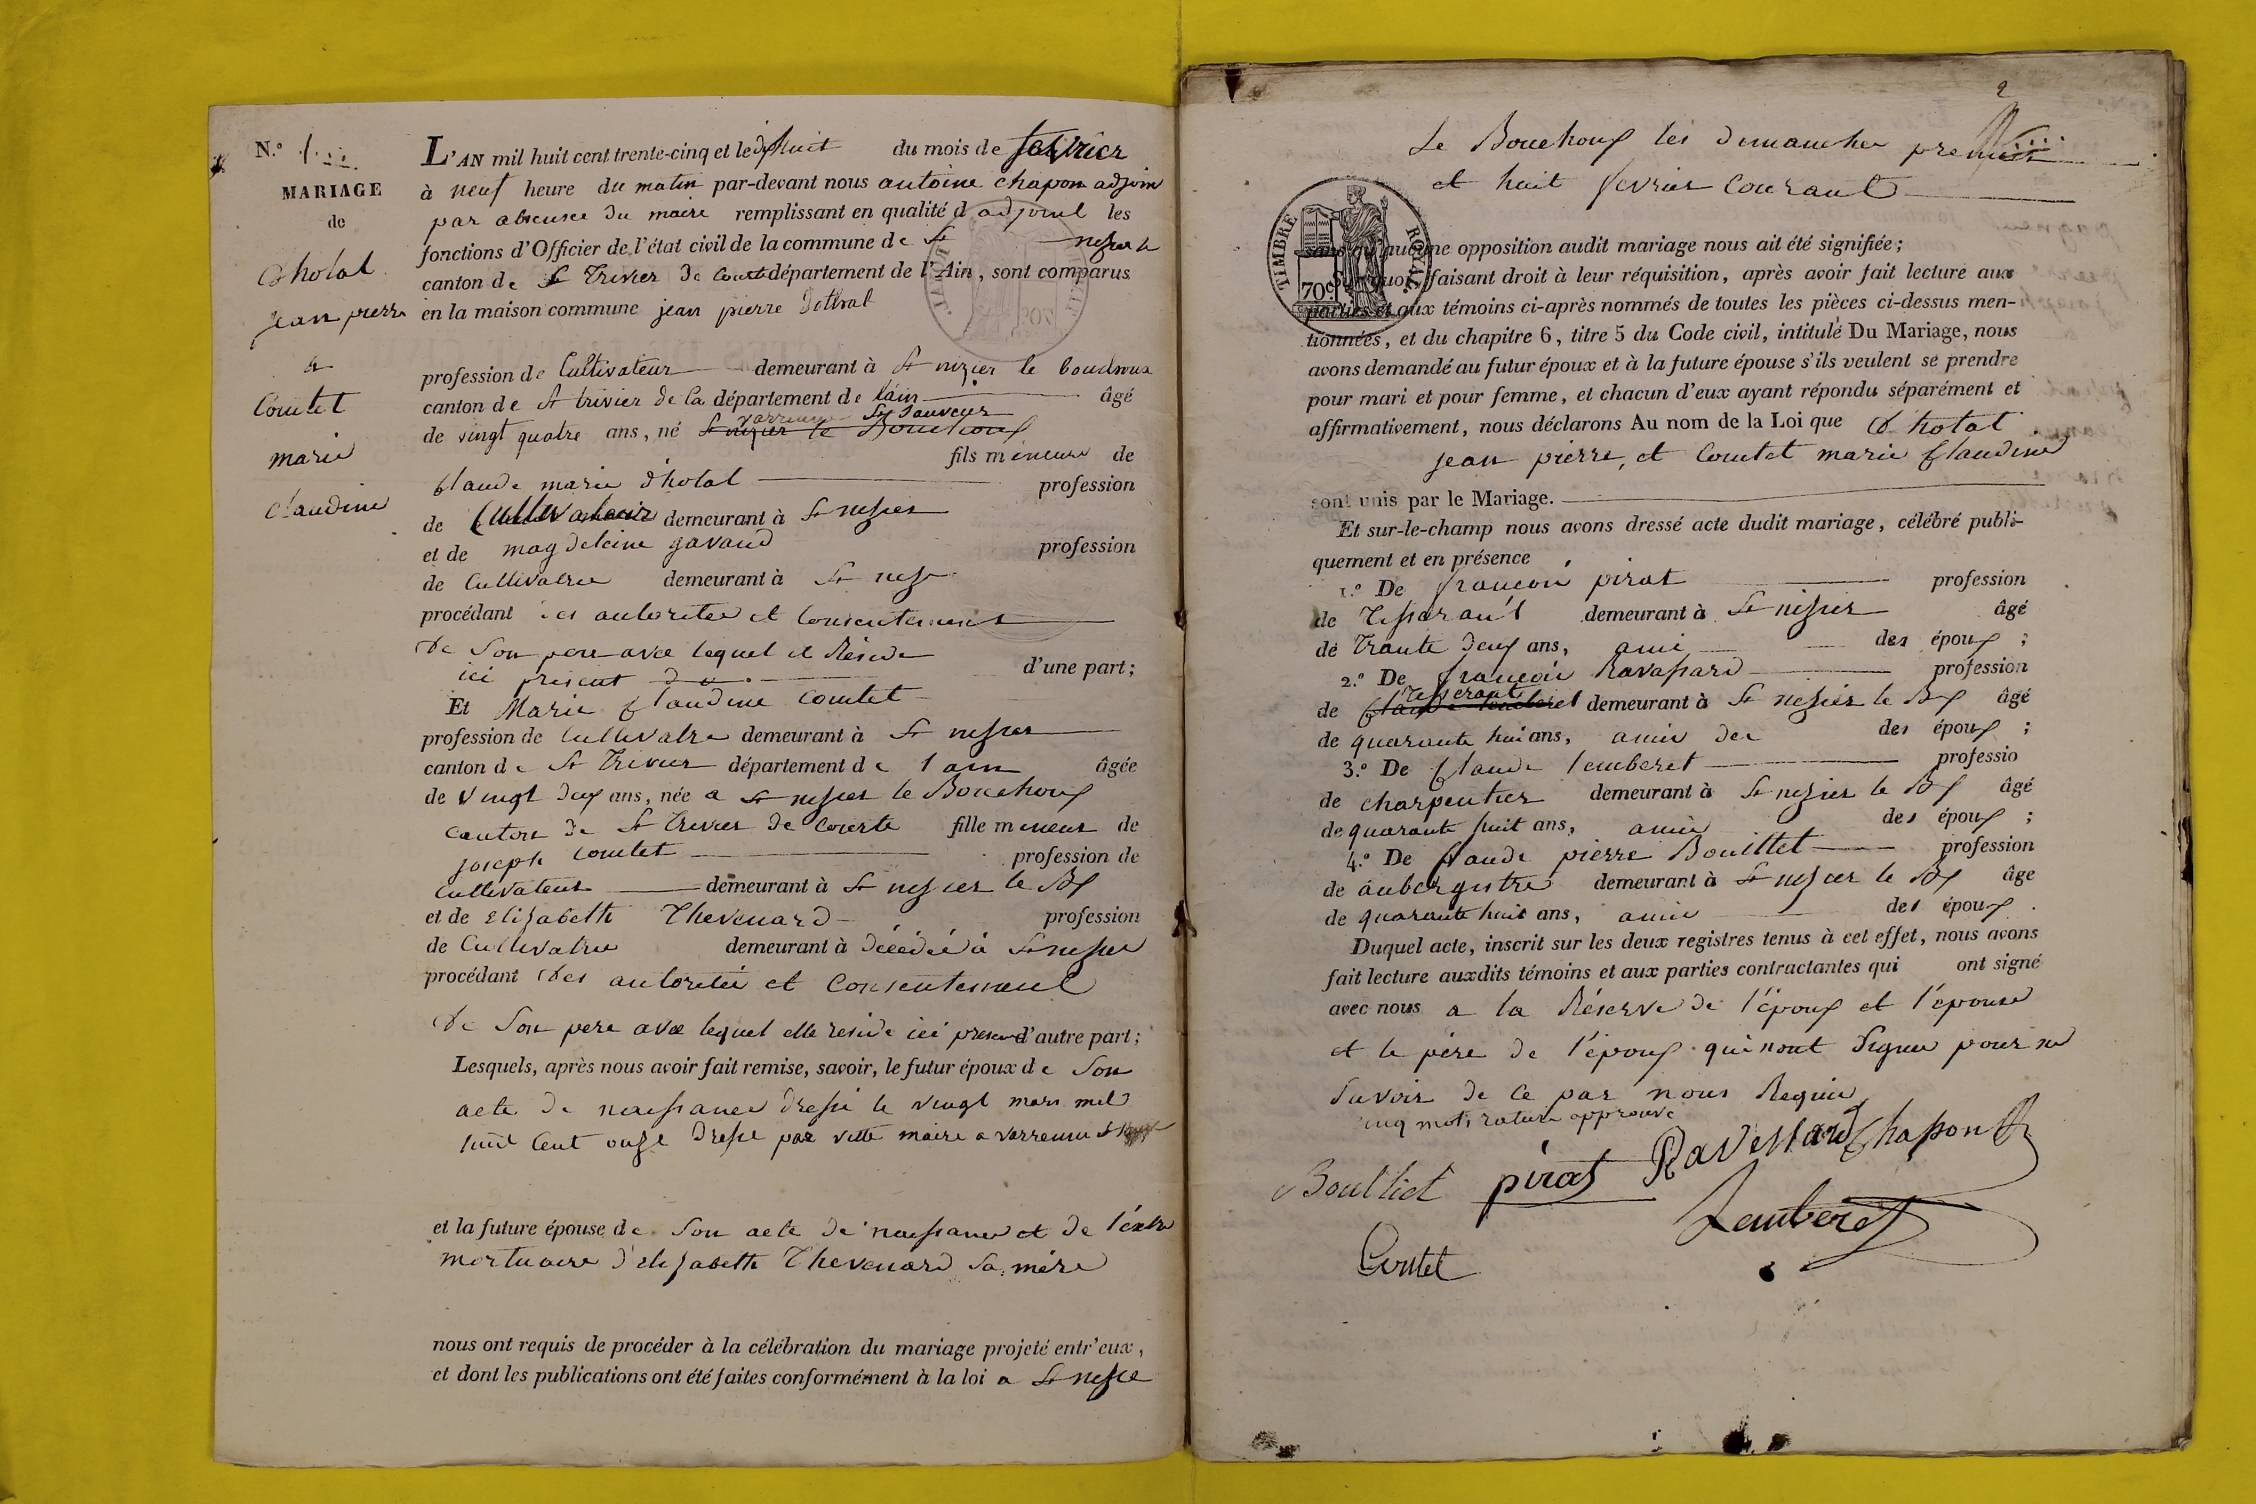 N.º 1
MARIAGE
de
Dhotal
jean pierre
a
Comtet
marie
claudine
L'AN mil huit cent trente-cinq et le dixhuit du mois de fevrier
à neuf heure du matin par-devant nous antoine chapon adjoin
par absence du maire remplissant en qualité d adjoint les
fonctions d'Officier de l'état civil de la commune de St nesier le
canton de St Trivier de Court département de l'Ain, sont comparus
en la maison commune jean pierre Dothal
profession de Cultivateur demeurant à St nizier le bouchoux
canton de St trivier de Co département de l'ain âgé
varrenne St Sauveur
de vingt quatre ans, né St nizier le Bouchoux
fils mineure de
Claude marie d'hotal profession
de Cultivateur demeurant à St nesier
et de magdeleine gavand profession
de Cultivatrice demeurant à St nesier
procédant des autoritée et consentement
de son pere avec lequel il Réside
ici présent d'une part;
Et Marie Claudine comtet
profession de Cultivatre demeurant à St nesier
canton de St Trivier département de l ain âgée
de vingt deux ans, née a St nesier le Bouchoux
canton de St trevier de Courte fille mineur de
joseph comtet profession de
cultivateur demeurant à St nesier le Bx
et de Elizabeth Thevenard profession
de Cultivatrice demeurant à décédée à St nesier
procédant des autoritée et consentement
de son pere avec lequel elle reside ici present d'autre part;
Lesquels, après nous avoir fait remise, savoir, le futur époux de son
acte de naissance dressé le vingt mars mil
huit cent onze dressé par vette maire a varrenne St
et la future épouse de son acte de naissance et de l'extre
mortuaire d'elizabeth Thevenard sa mére
nous ont requis de procéder à la célébration du mariage projeté entr'eux,
et dont les publications ont été faites conformément à la loi a St nesie
2
Le Bouchoux les dimanches premier
et huit fevrier courant
TIMBRE ROYAL
70c
sans qu'aucune opposition audit mariage nous ait été signifiée;
Sur quoi, faisant droit à leur réquisition, après avoir fait lecture aux
parties et aux témoins ci-après nommés de toutes les pièces ci-dessus men-
tionnées, et du chapitre 6, titre 5 du Code civil, intitulé Du Mariage, nous
avons demandé au futur époux et à la future épouse s'ils veulent se prendre
pour mari et pour femme, et chacun d'eux ayant répondu séparément et
affirmativement, nous déclarons Au nom de la Loi que Dhotal
jean pierre, et Comtet marie Claudine
sont unis par le Mariage.
Et sur-le-champ nous avons dressé acte dudit mariage, célébré publi-
quement et en présence
1.º De françois pirat profession
de Tisserant demeurant à St nesier âgé
de Trante deux ans, ami des époux ;
2.º De françois Ravassard profession
Tisserant
de Claude lemberet demeurant à St nesier le Bx âgé
de quarante huit ans, amis des des époux ;
3.º De Claude lemberet professio
de charpentier demeurant à St nesier le Bx âgé
de quarante huit ans, amis des époux ;
4.º De Claude pierre Bouillet profession
de aubergistre demeurant à St nesier le Bx âge
de quarante huit ans, amis des époux .
Duquel acte, inscrit sur les deux registres tenus à cet effet, nous avons
fait lecture auxdits témoins et aux parties contractantes qui ont signé
avec nous a la Réserve de l'époux et l'épouse
et le pére de l'époux qui nont signer pour ne
savoir de ce par nous Requis
cinq mots rature approuvé
Boulliet pirat Ravessard Chapon
Lemberet
Comtet